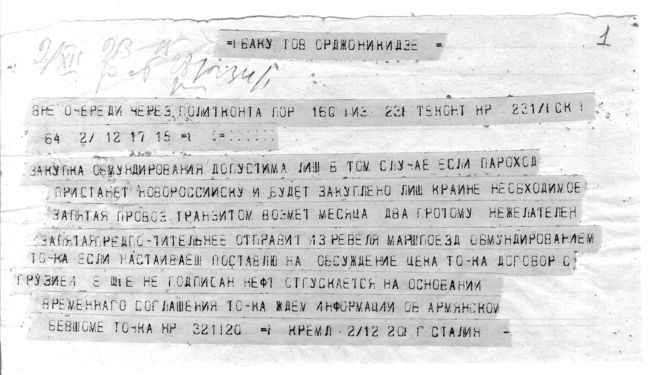 1
=БАКУ ТОВ ОРДЖОНИКИДЗЕ =
2/XII
ВНЕ ОЧЕРЕДИ ЧЕРЕЗ ПОЛИТКОНТА ПОР 156 ИЗ 231 ТЕКОНТ НР 231/
64 2/ 12 17 15 =
ЗАКУПКА ОБМУНДИРОВАНИЯ ДОПУСТИМА ЛИШ В ТОМ СЛУЧАЕ ЕСЛИ ПАРОХОД
ПРИСТАНЕТ НОВОРОССИИСКУ И БУДЕТ ЗАКУПЛЕНО ЛИШ КРАИНЕ НЕОБХОДИМОЕ
ЗАПЯТАЯ ПРОВОЗ ТРАНЗИТОМ ВОЗМЕТ МЕСЯЦА ДВА ПОТОМУ НЕЖЕЛАТЕЛЕН
ЗАПЯТАЯ ОТПРАВИТ ИЗ РЕВЕЛЯ МАРШПОЕЗД ОБМУНДИРОВАНИЕМ
ТО-КА ЕСЛИ НАСТАИВАЕШ ПОСТАВЛЮ НА ОБСУЖДЕНИЕ ЦЕКА ТО-КА ДОГОВОР С
ГРУЗИЕИ НЕ ПОДПИСАН НЕФТ ОТПУСКАЕТСЯ НА ОСНОВАНИИ
ВРЕМЕННАГО СОГЛАШЕНИЯ ТО-КА ЖДЕМ ИНФОРМАЦИИ ОБ АРМЯНСКОМ
ТОЧКА НР 321120 = КРЕМЛ 2/12 20 Г СТАЛИН -